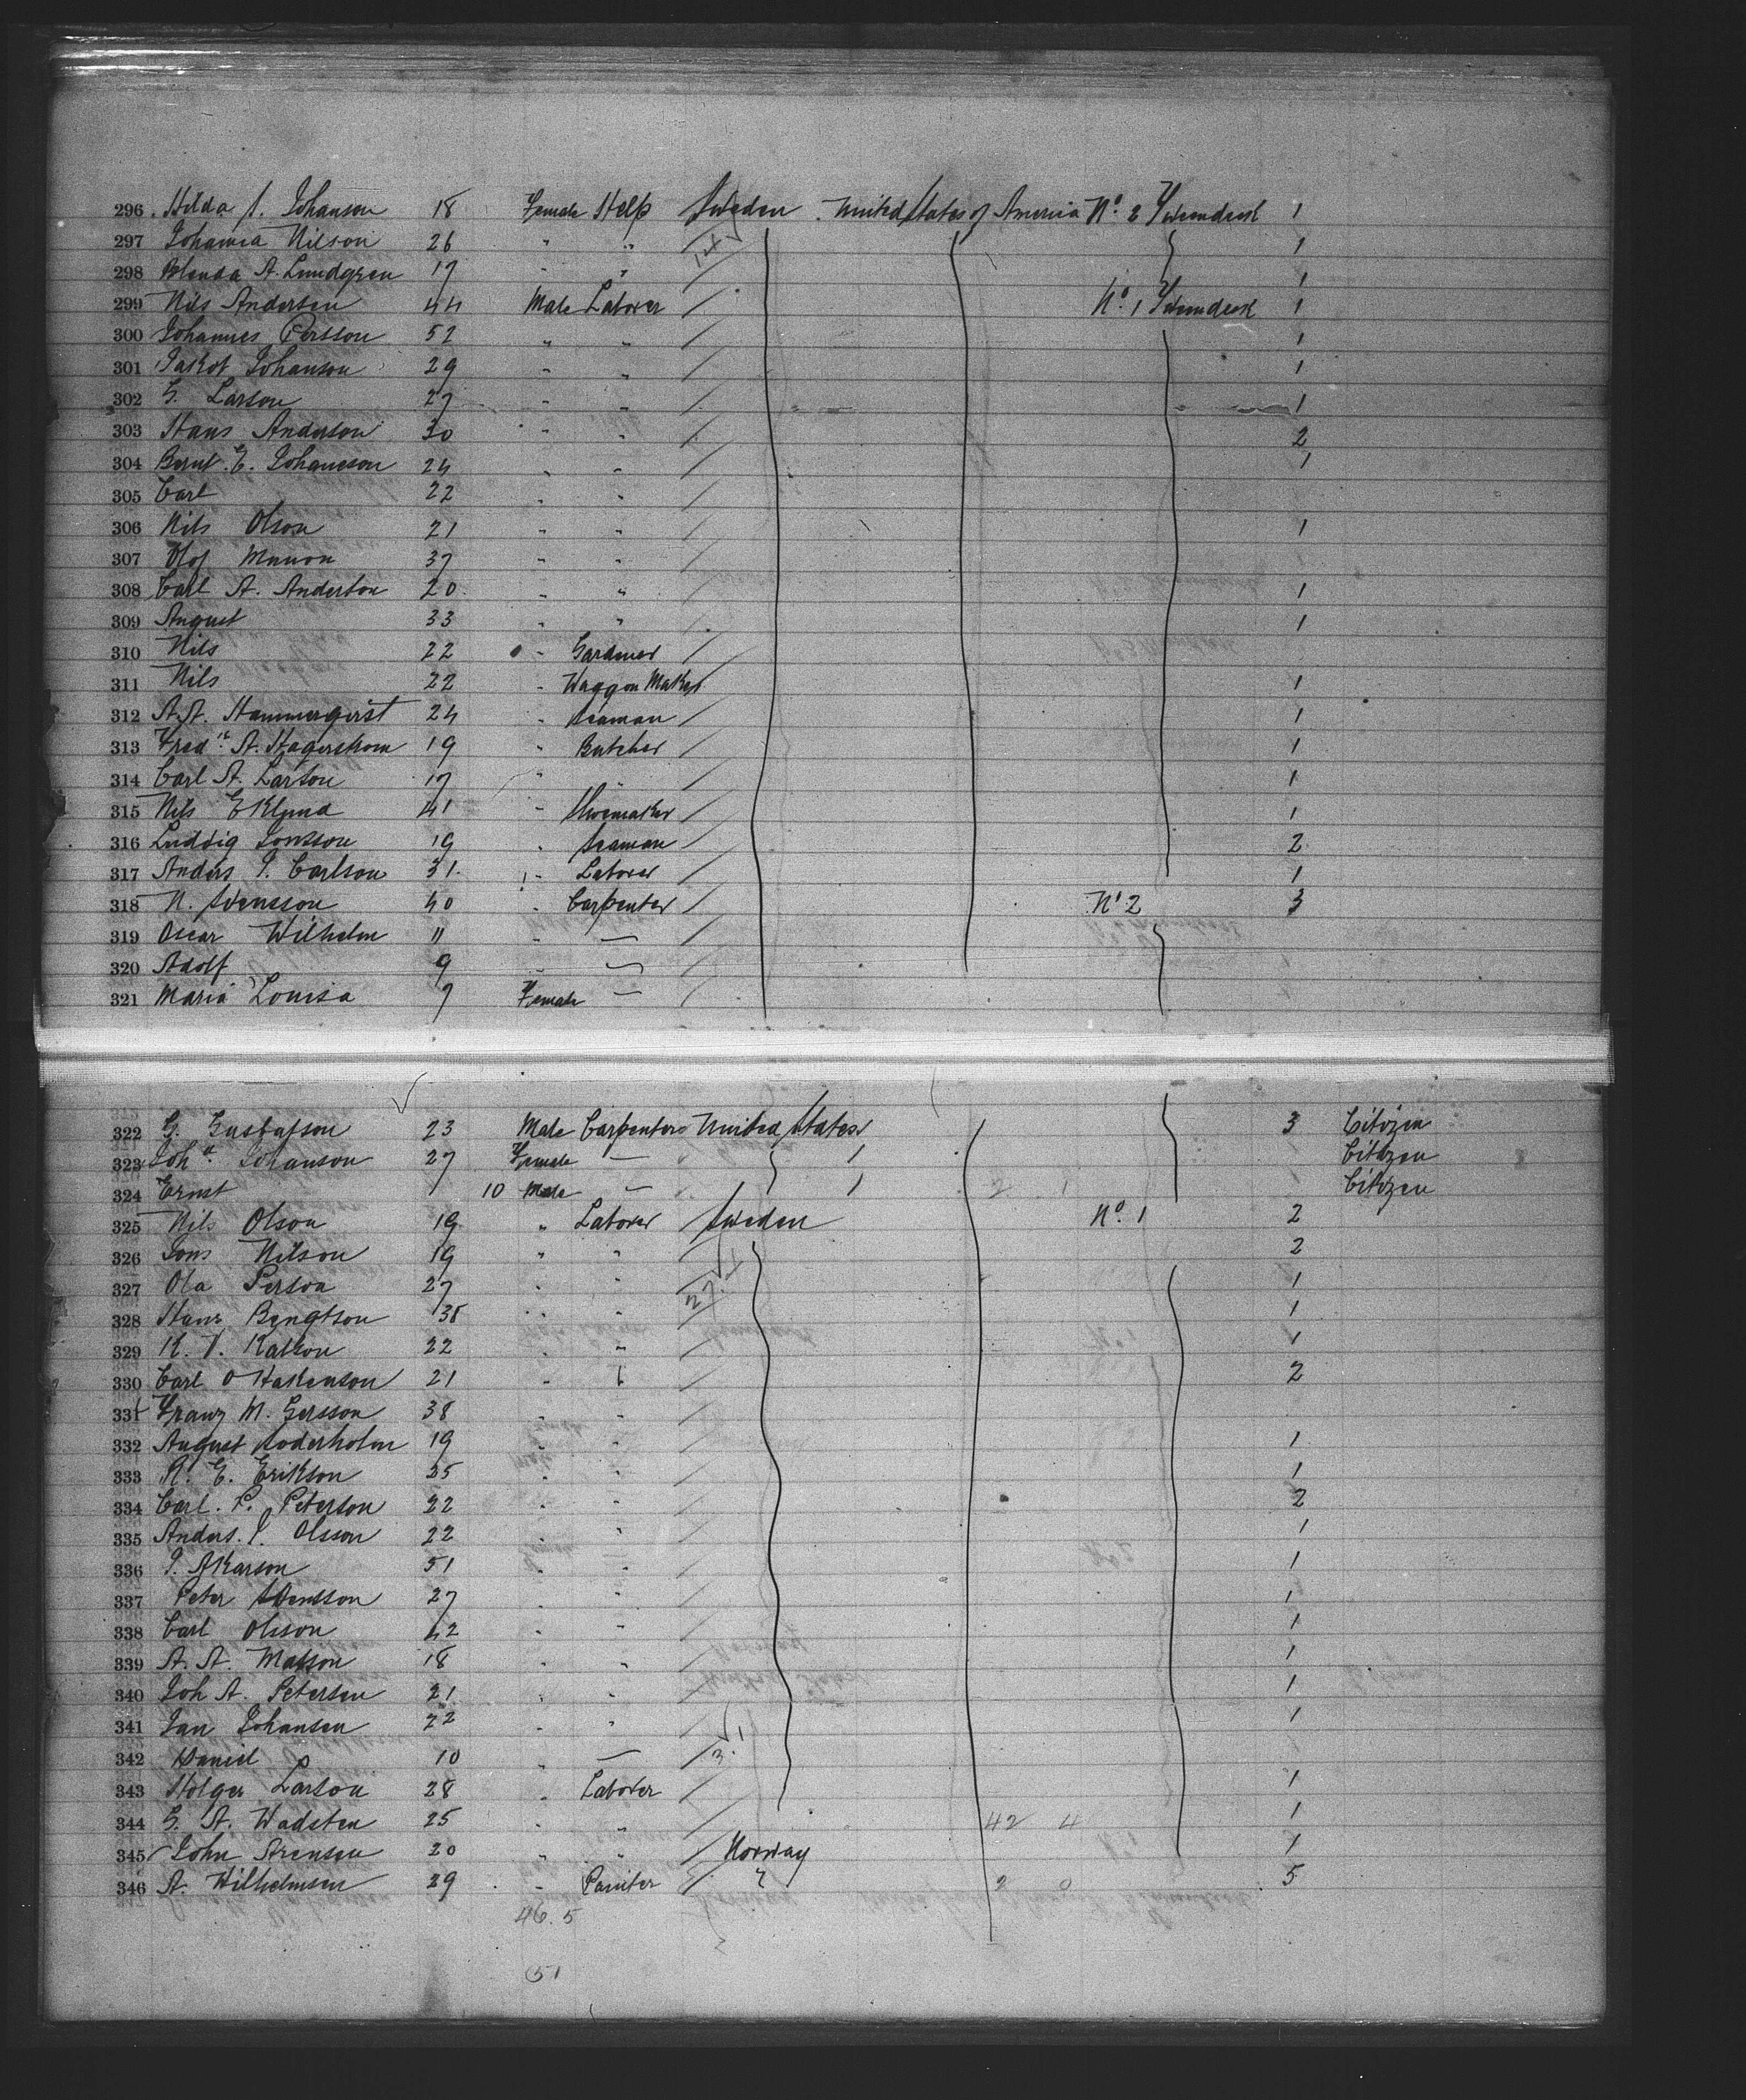 296 Hilda S. Johanson 18 Female Help Sweden United States of America No. 2 Tweendeck 1
297 Johanna Nilson 26 " " 1
298 Blenda A. Lundgren 17 " " 1
299 Nils Andersen 44 Male Laborer No. 1 Tweendeck 1
300 Johannes Persson 52 " " 1
301 Jakob Johanson 29 " " 1
302 G. Larson 27 " " 1
303 Hans Anderson 30 " " 2
304 Bernt. E. Johaneson 24 " " 1
305 Carl 22 " "
306 Nils Olson 21 " " 1
307 Olof Manon 37 " "
308 Carl A. Anderson 20 " " 1
309 August 33 " " 1
310 Nils 22 " Gardener
311 Nils 22 " Waggon Maker 1
312 A. A. Hammerqvist 24 " Seaman 1
313 Fredk. A. Hagerstrom 19 " Butcher 1
314 Carl A. Larson 17 " " 1
315 Nils Eklund 41 " Shoemaker 1
316 Ludvig Jonsson 19 " Seaman 2
317 Anders J. Carlson 31 " Laborer 1
318 N. Svensson 40 " Carpenter No. 2 3
319 Oscar Wilhelm 11 " —
320 Adolf 9 " —
321 Maria Louisa 7 Female —
322 G. Gustafson 23 Male Carpenter United States 3 Citizen
323 Joha. Johanson 27 Female — 1 Citizen
324 Ernst 10 Male — 1 2 1 Citizen
325 Nils Olson 19 " Laborer Sweden No. 1 2
326 Jons Nilson 19 " " 2
327 Ola Person 27 " " 1
328 Hans Bengtson 38 " " 1
329 K. V. Kalson 22 " " 1
330 Carl O Hakenson 21 " " 2
331 Franz M. Gersson 38 " "
332 August Soderholm 19 " " 1
333 A. E. Erikson 25 " " 1
334 Carl. P. Peterson 22 " " 2
335 Anders. J. Olsson 22 " " 1
336 J. Akarson 51 " " 1
337 Peter Svensson 27 " " 1
338 Carl Olsson 42 " " 1
339 A. A. Matson 18 " " 1
340 Joh A. Petersen 21 " " 1
341 Jan Johansen 22 " " 1
342 Daniel 10 " —
343 Holger Larson 28 " Laborer 1
344 G. A. Wadsten 25 " " 42 4 1
345 John Arensen 20 " " Norway 1
346 A. Wilhelmsen 29 " Painter " 2 0 5
46. 5
51